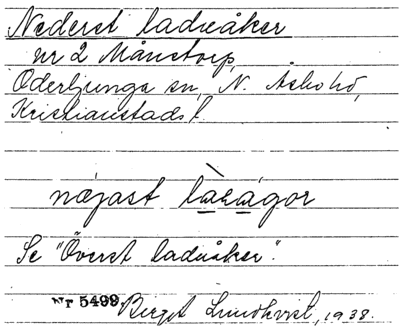 Nederst ladeåker
nr 2 Månstorp,
Oderljunga sn, N. Åsbo hd,
Kristianstads l.
Se "Överst ladeåker".
Nr 5499. Birgit Lundkvist, 1938.